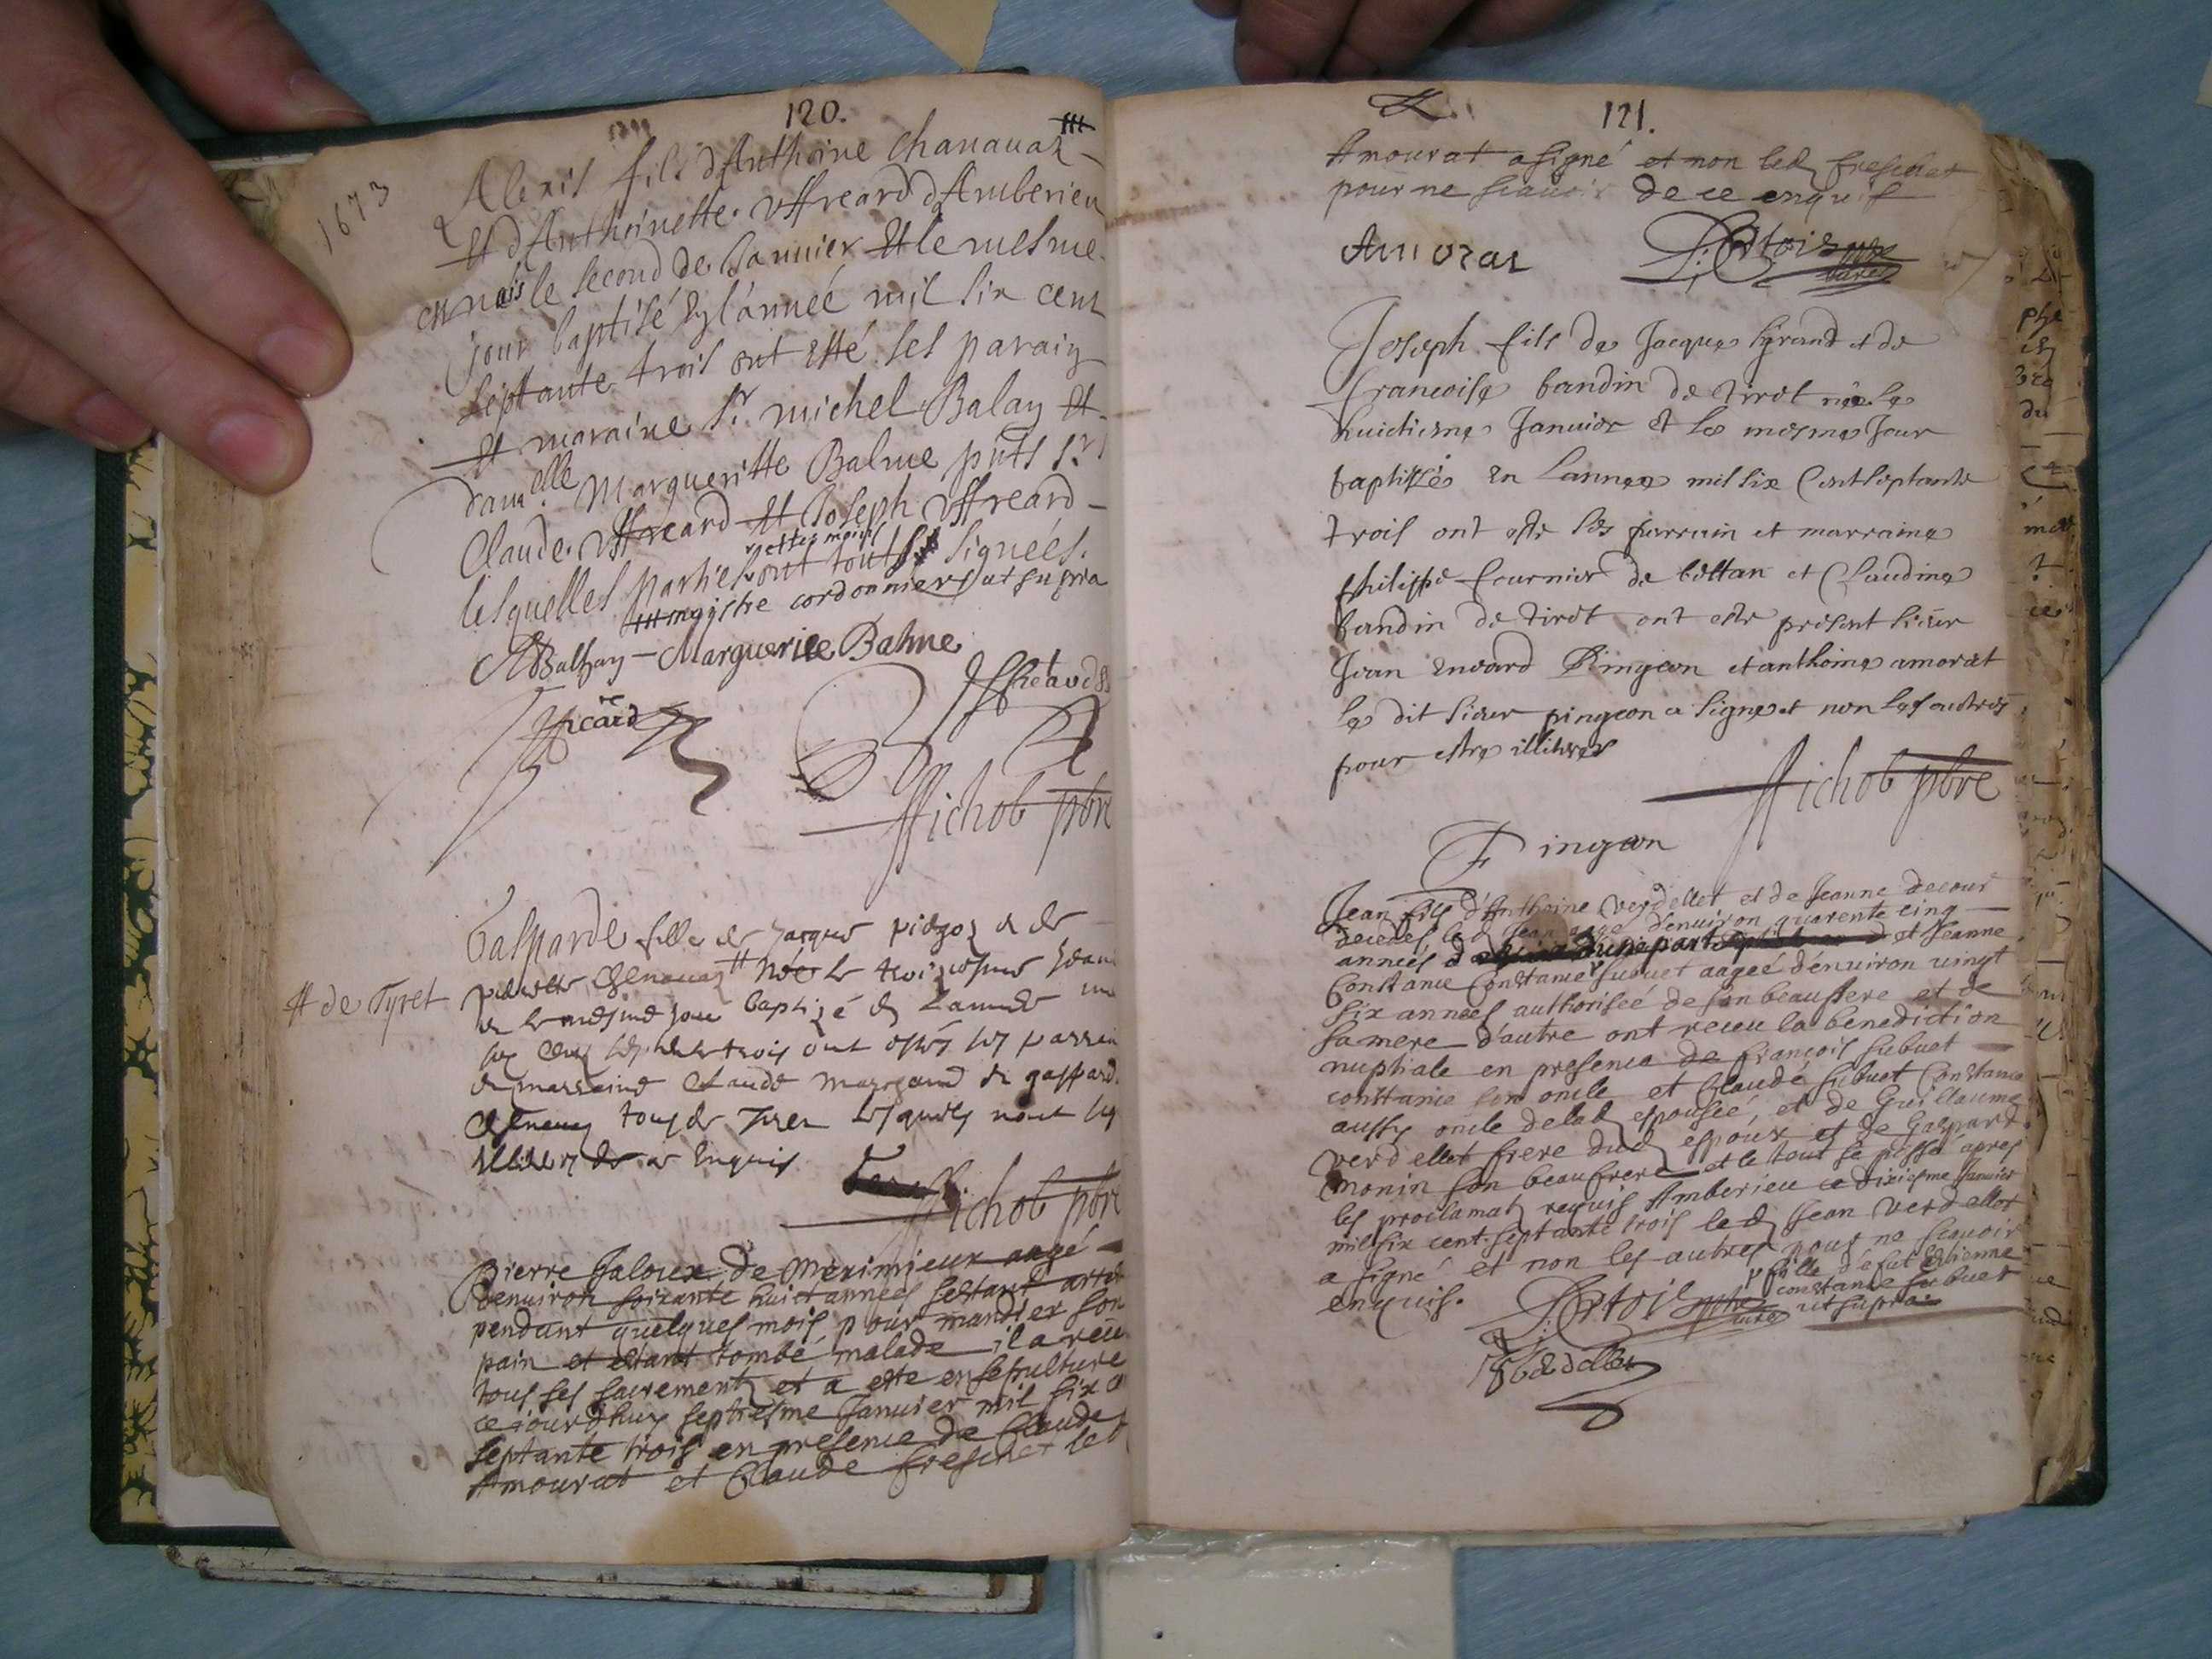 120.
1673
Alexis fils d'Anthoine Chanauaz
et d'Anthoinette Uffreard d'Amberieu
en nais le second de Januier et le mesme
jour baptisé en l'année mil six cent
septante trois ont esté ses parain
et maraine Sr. michel Balay et
dam.elle Margueritte Balme pnts Srs
Claude Uffreard et Joseph Uffreard
lesquelles parties ont touts signées.
maistre cordonniers ut supra
Balhay Marguerite Balme
Michob pbre
Gasparde fille de Jacques et de
pierrette Chenauaz # née le troiziesme Janu
# de Tyret
et le mesme jour baptizé en Lannee mil
six cens septante trois ont estés ses parrein
et marreine Claude et gasparde
Chenauaz tous de Tiret lesquels nont sig
illiteres de ce Enquis
Michob pbre
Pierre Jaloux de Meximieux aagé
denuiron soixante huict années sestant
pendant quelques mois pour mandier son
pain et estant tombé malade il a receu
tous ses sacrements et a este ensepulturé
ce jourdhuy septiesme Januier mil six ce
septante trois en presence de Claude
Amourat et Claude Freschet led
121.
Amourat a signé et non led Freschet
pour ne scauoir de ce enquis
Amorat
Joseph fils de Jacques Grand et de
francoise bandin de tiret née le
huictiesme Januier et le mesme Jour
baptisé en Lannee mil six Cent septante
trois ont esté ses parrain et marraine
philippe fournier de bettan et Claudine
bandin de tiret ont este present sieur
Jean Pingeon et anthoine amorat
le dit sieur pingeon a signe et non les autres
pour estre illiteres
Michob pbre
Pingeon
Jean fils d'Anthoine Verdellet et de Jeanne decour
decedes led Jean aagé denuiron quarente cinq
années d'une part et Jeanne
Constance Constance Subuet aageé d'enuiron uingt
six années authoriseé de son beaupere et de
sa mere d'autre ont receu la benediction
nuptiale en presence de françois Subuet
constance son oncle et Claude Subuet Constance
aussy oncle de lad espouseé, et de Guillaume
Verdellet frere dud espoux et de Gaspard
Monin son beaufrere et le tout se passé apres
les proclamats requis Amberieu ce dixiesme Januier
mil six cent septante trois led Jean Verdellet
a signé et non les autres pour ne scauoir
enquis.
fille defut Estienne
constance Subuet
ut supra